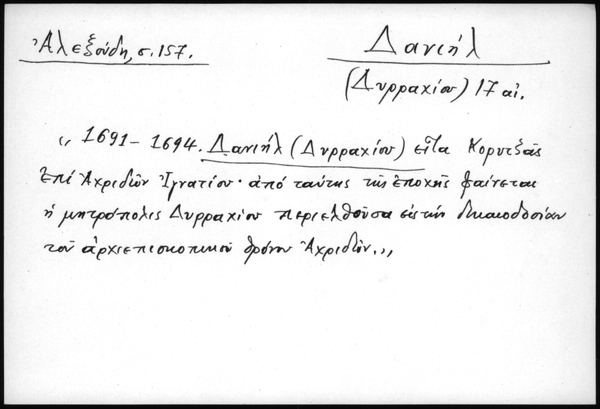 Ἀλεξούδη, σ. 157.
Δανιήλ
(Δυρραχίου) 17 αἰ.
„ 1691 – 1694. Δανιήλ (Δυρραχίου) εἶτα Κορυτξᾶς
ἐπί Ἀχριδῶν Ἰγνατίου· ἀπό ταύτης τῆς ἐποχῆς φαίνεται
ἡ μητρόπολις Δυρραχίου περιελθοῦσα εἰς τήν δικαιοδοσίαν
τοῦ ἀρχιεπισκοπικοῦ θρόνου Ἀχριδῶν.„